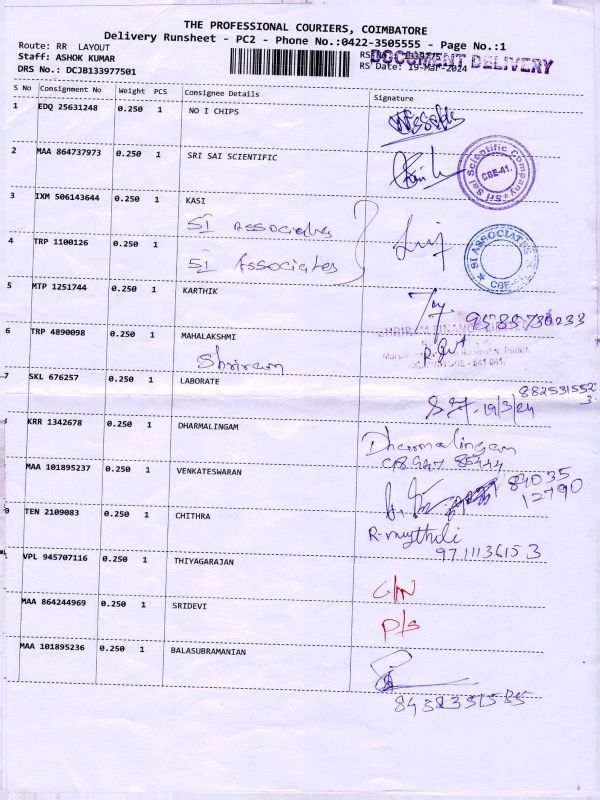 THE PROFESSIONAL COURIERS, COIMBATORE
Delivery Runsheet - PC2 - Phone No.:0422-3505555 - Page No.:1
Route: RR LAYOUT
Staff: ASHOK KUMAR
DRS No.: DCJB133977501
RS Date: 19-Mar-2024
DOCUMENT DELIVERY
S No Consignment No Weight PCS Consignee Details Signature
1 EDQ 25631248 0.250 1 NO I CHIPS
2 MAA 864737973 0.250 1 SRI SAI SCIENTIFIC
Sri Sai Scientific Company CBE-41.
3 IXM 506143644 0.250 1 KASI
SI Associates
4 TRP 1100126 0.250 1
SI Associates
SI ASSOCIATES
5 MTP 1251744 0.250 1 KARTHIK
6 TRP 4890098 0.250 1 MAHALAKSHMI
Shriram
7 SKL 676257 0.250 1 LABORATE
19/3/24
KRR 1342678 0.250 1 DHARMALINGAM
Dharmalingam
MAA 101895237 0.250 1 VENKATESWARAN
84035
12790
0 TEN 2109083 0.250 1 CHITHRA
R-mythili
9711136153
VPL 945707116 0.250 1 THIYAGARAJAN
C/N
MAA 864244969 0.250 1 SRIDEVI
P/S
MAA 101895236 0.250 1 BALASUBRAMANIAN